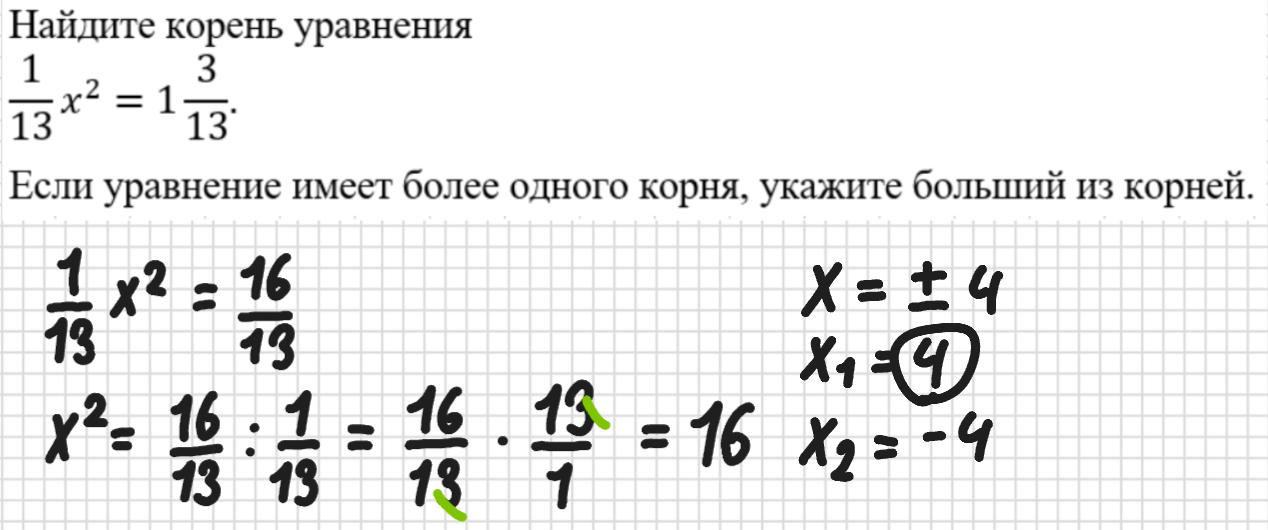 Найдите корень уравнения
1/13 x² = 1 3/13.
Если уравнение имеет более одного корня, укажите больший из корней.
1/13 x² = 16/13
x² = 16/13 : 1/13 = 16/13 · 13/1 = 16
x = ± 4
x₁ = 4
x₂ = -4